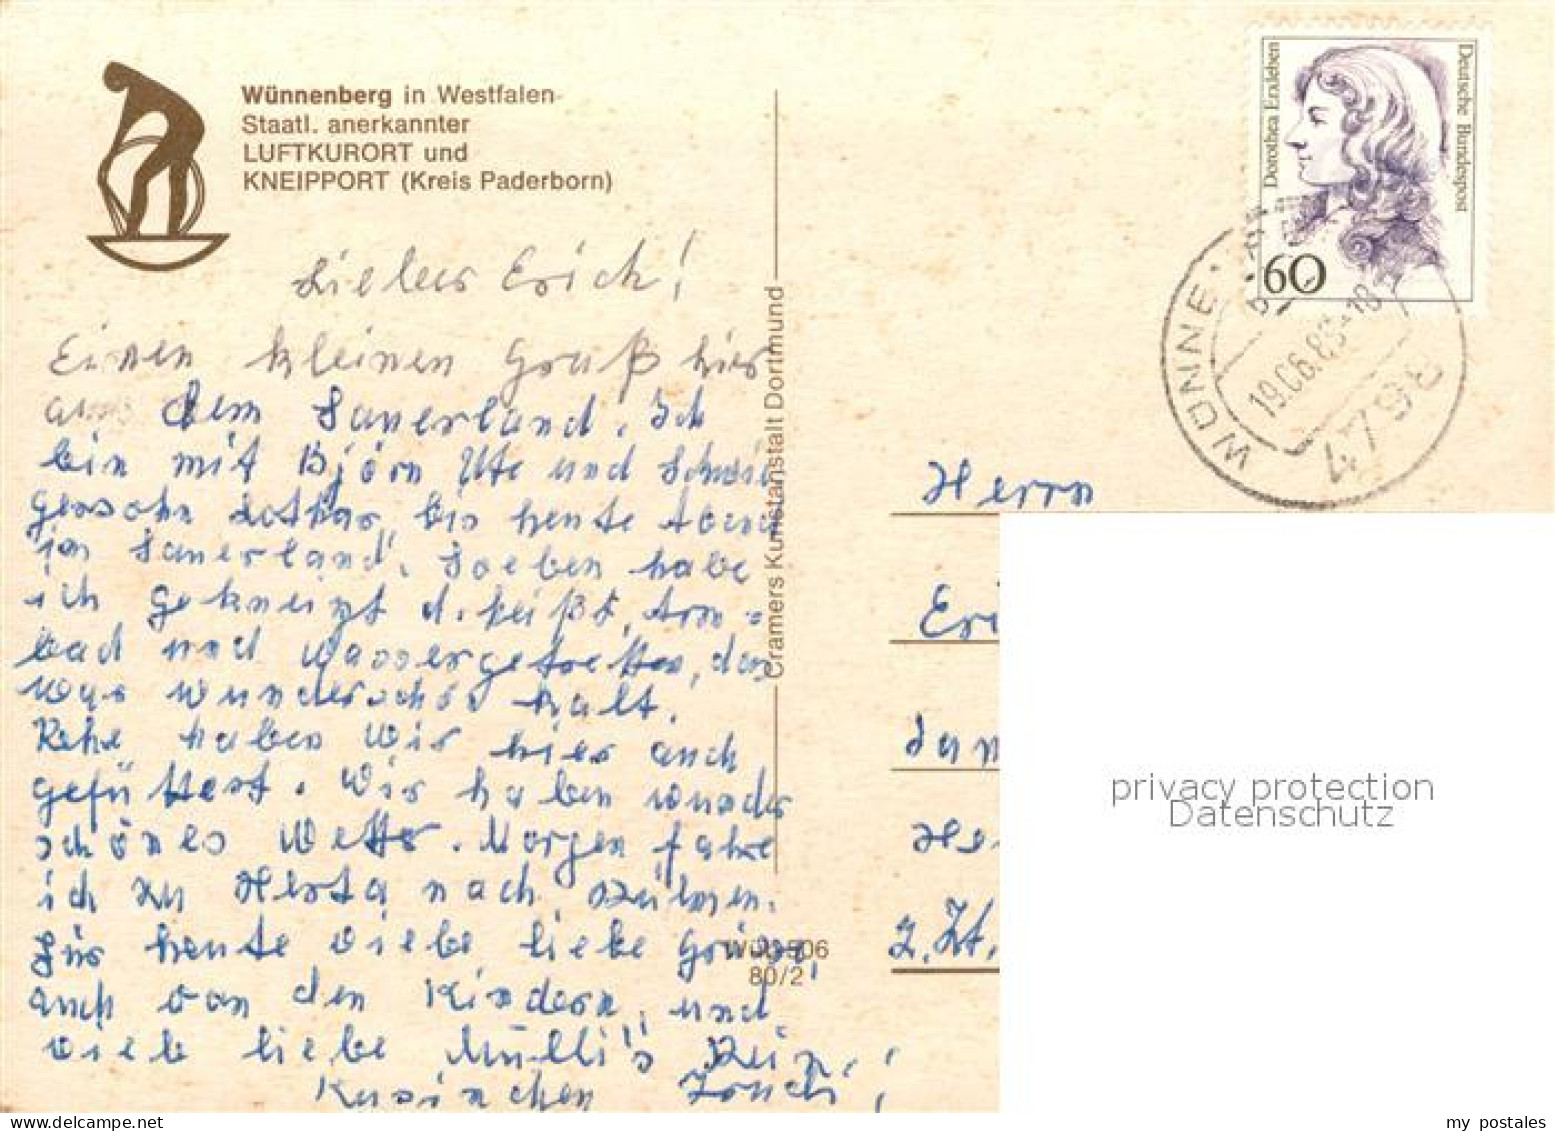 Wünnenberg in Westfalen
Staatl. anerkannter
LUFTKURORT und
KNEIPPORT (Kreis Paderborn)
Dorothea Erxleben
Deutsche Bundespost
60
WÜNNE
19.06.89-18
4798
Lieber Erich!
Einen kleinen Gruß hier
aus dem Sauerland. Ich
bin mit Björn Ute und Schwie
gersohn Lothar, bis heute Abend
im Sauerland. Soeben habe
ich gekneipt d. heißt, Arm=
bad und Wassergetreten, das
was wunderschön kalt.
Rehe haben wir hier auch
gefüttert. Wir haben wunder
schönes Wetter. Morgen fahre
ich zu Herta nach
Für heute viele liebe Grüße,
auch von den Kindern, und
viele liebe Mülli's
Kusinchen
Cramers Kunstanstalt Dortmund
Wüg 506
80/2
Herrn
Eri
z.Zt.
privacy protection
Datenschutz
my postales